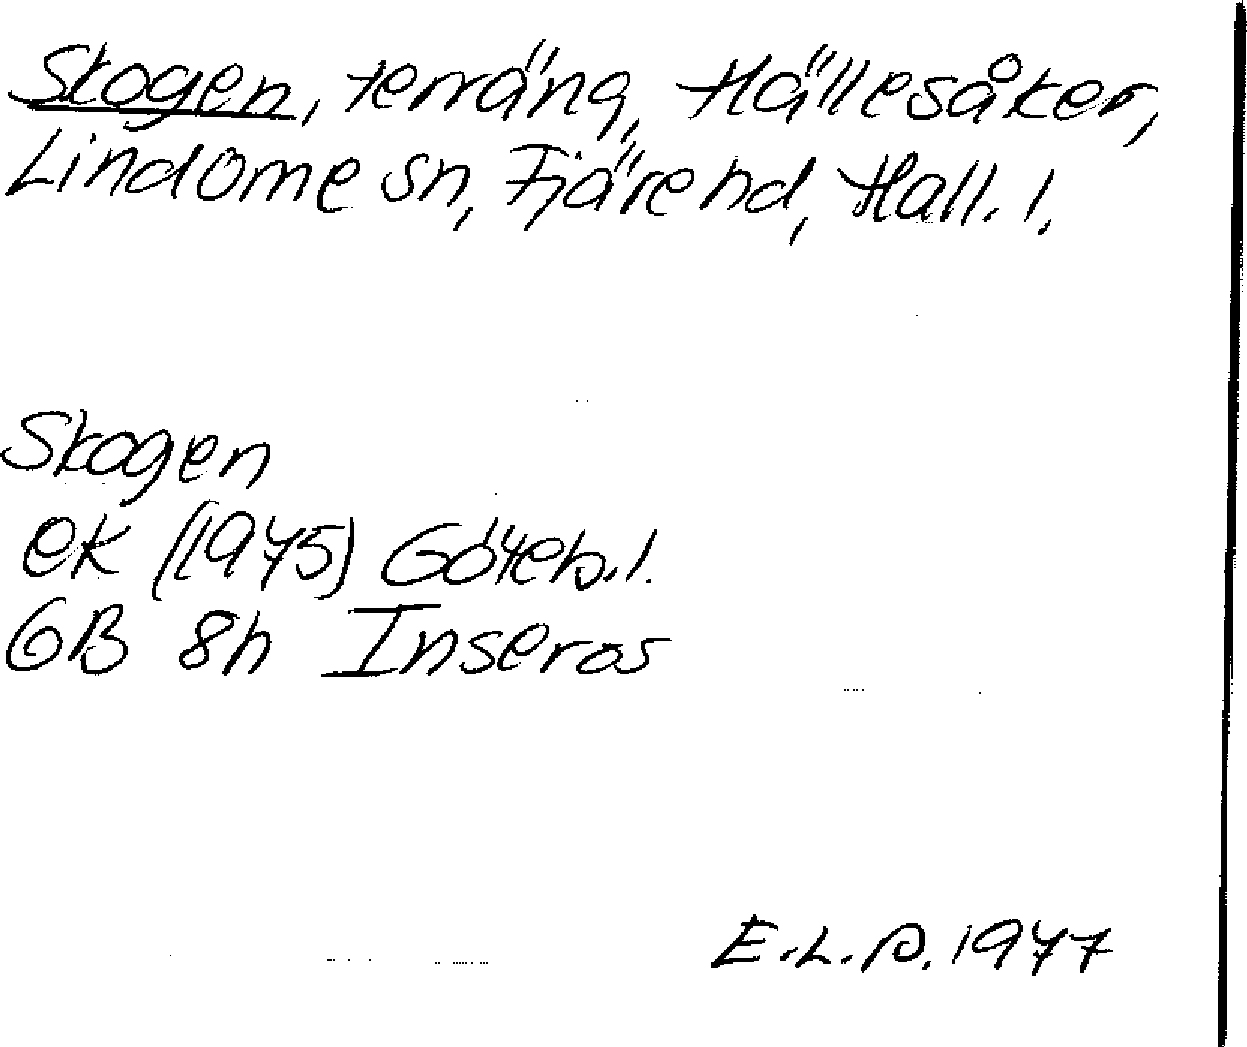 Skogen, terräng, Hällesåker,
Lindome sn, Fjäre hd, Hall. l.
Skogen
ek (1975) Göteb. l.
GB 8h Inseros
E.L.P. 1977